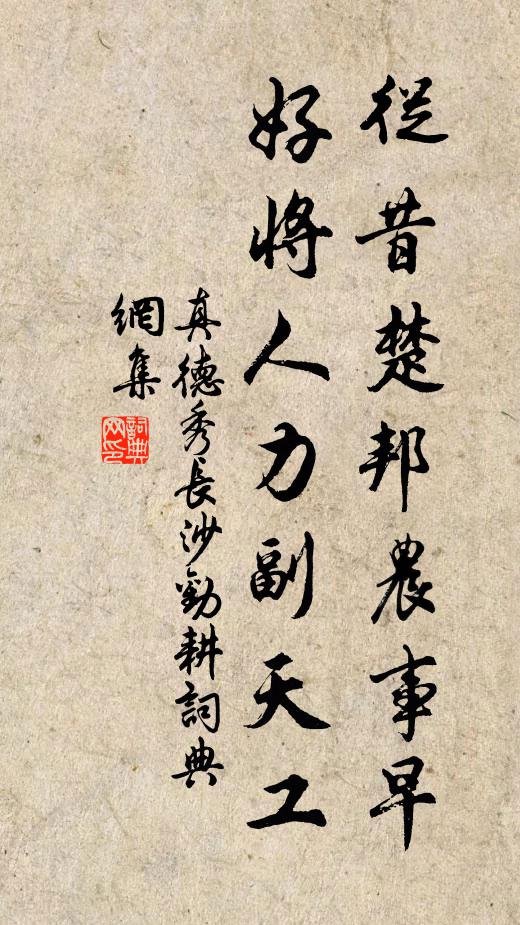 從昔楚邦農事早
好將人力副天工
真德秀長沙勸耕詞典
網集
詞典
网印